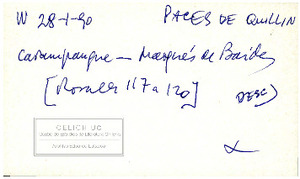 W 28-1-90 PACES DE QUILLIN
Carampangue - Marqués de Baides
[Rosales 117 a 120] DESC)
CELICH UC